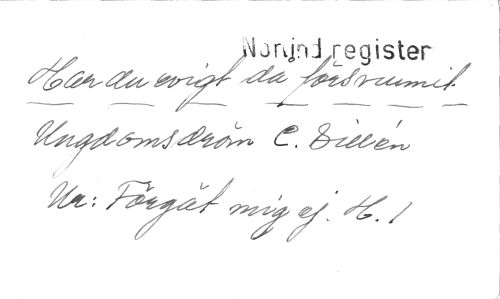 Norlind register
Har du evigt då försvunnit
Ungdomsdröm C. Dillén
Ur: Förgät mig ej. H. 1